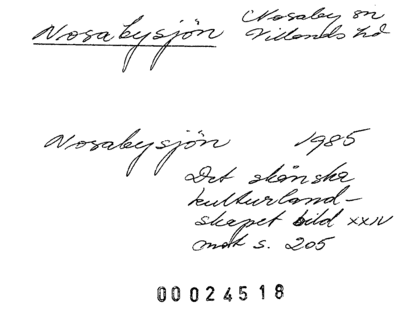 Nosabysjön
Nosaby sn
Villands hd
Nosabysjön 1985
Det skånska
kulturland-
skapet bild XXIV
mot s. 205
00024518